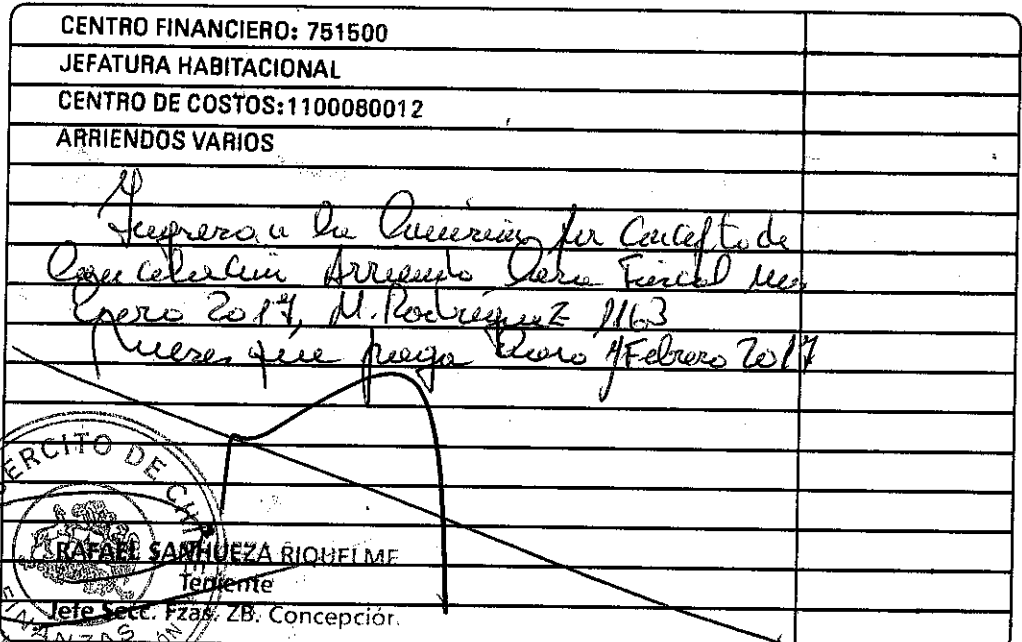 CENTRO FINANCIERO: 751500
JEFATURA HABITACIONAL
CENTRO DE COSTOS:1100080012
ARRIENDOS VARIOS
por Concepto de
Arriendo Fiscal Mes
Enero 2017, M. Rodriguez 1163
que paga Enero y Febrero 2017
EJERCITO DE CHILE
RAFAEL SANHUEZA RIQUELME
Teniente
Jefe Secc. Fzas. ZB. Concepción.
FINANZAS